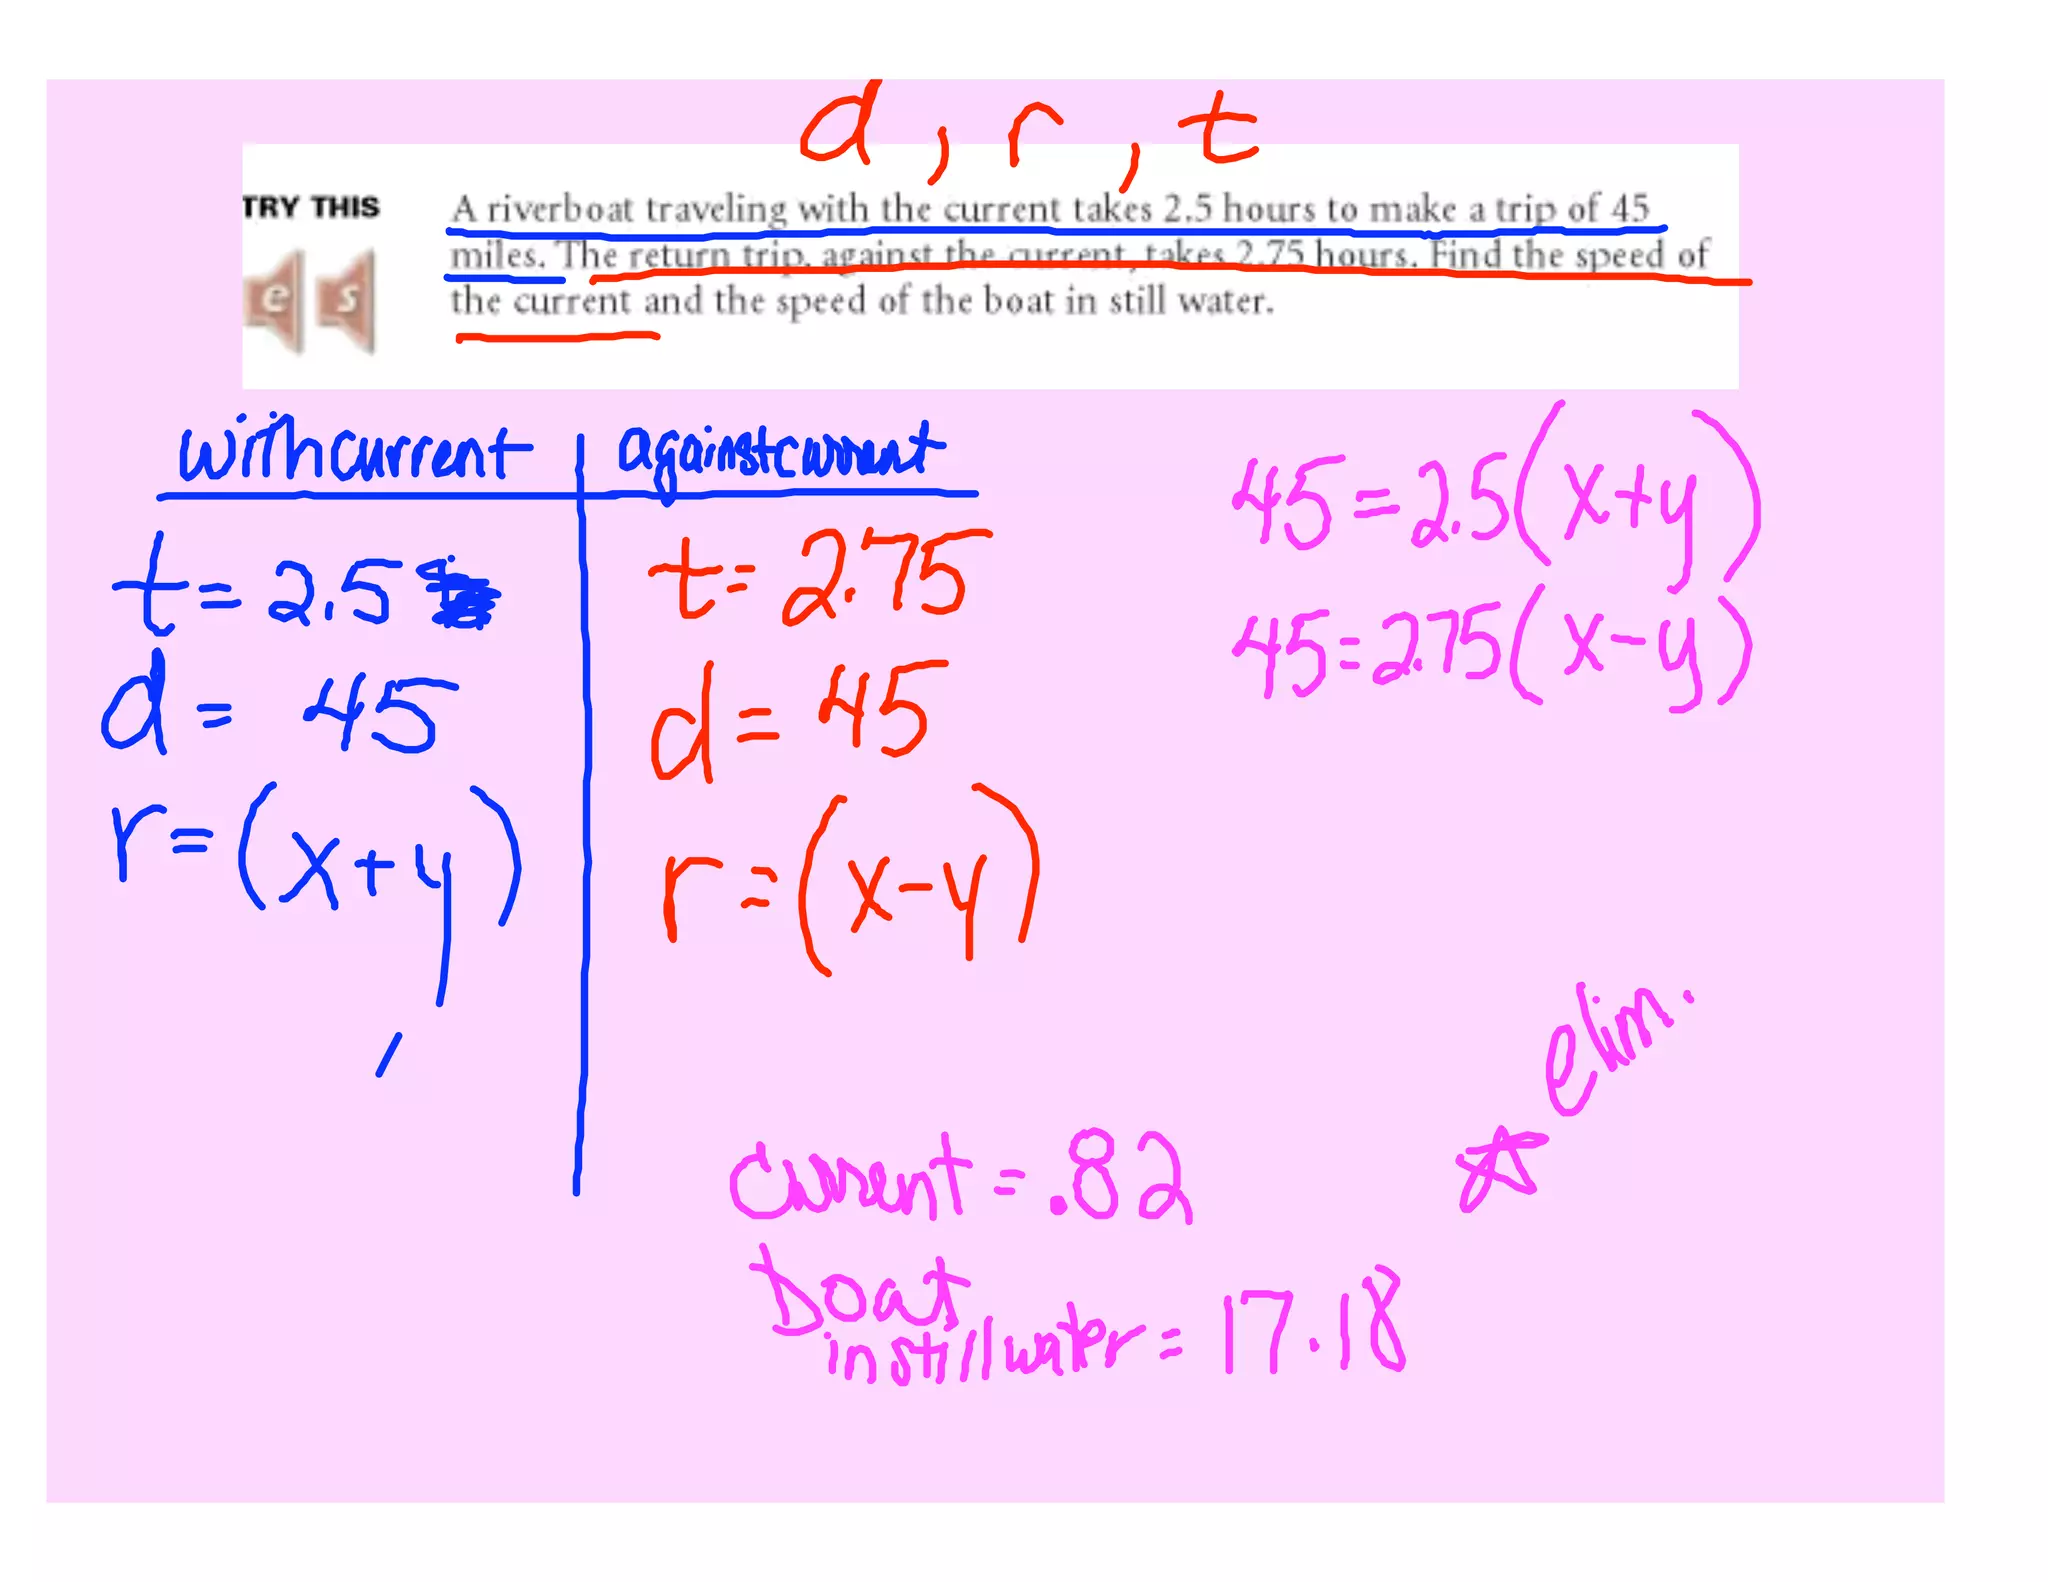 d, r, t
TRY THIS
A riverboat traveling with the current takes 2.5 hours to make a trip of 45
miles. The return trip, against the current, takes 2.75 hours. Find the speed of
the current and the speed of the boat in still water.
e s
with current
t = 2.5
d = 45
r = (x+y)
against current
t = 2.75
d = 45
r = (x-y)
45 = 2.5(x+y)
45 = 2.75(x-y)
elim.
Current = .82
boat
in still water = 17.18